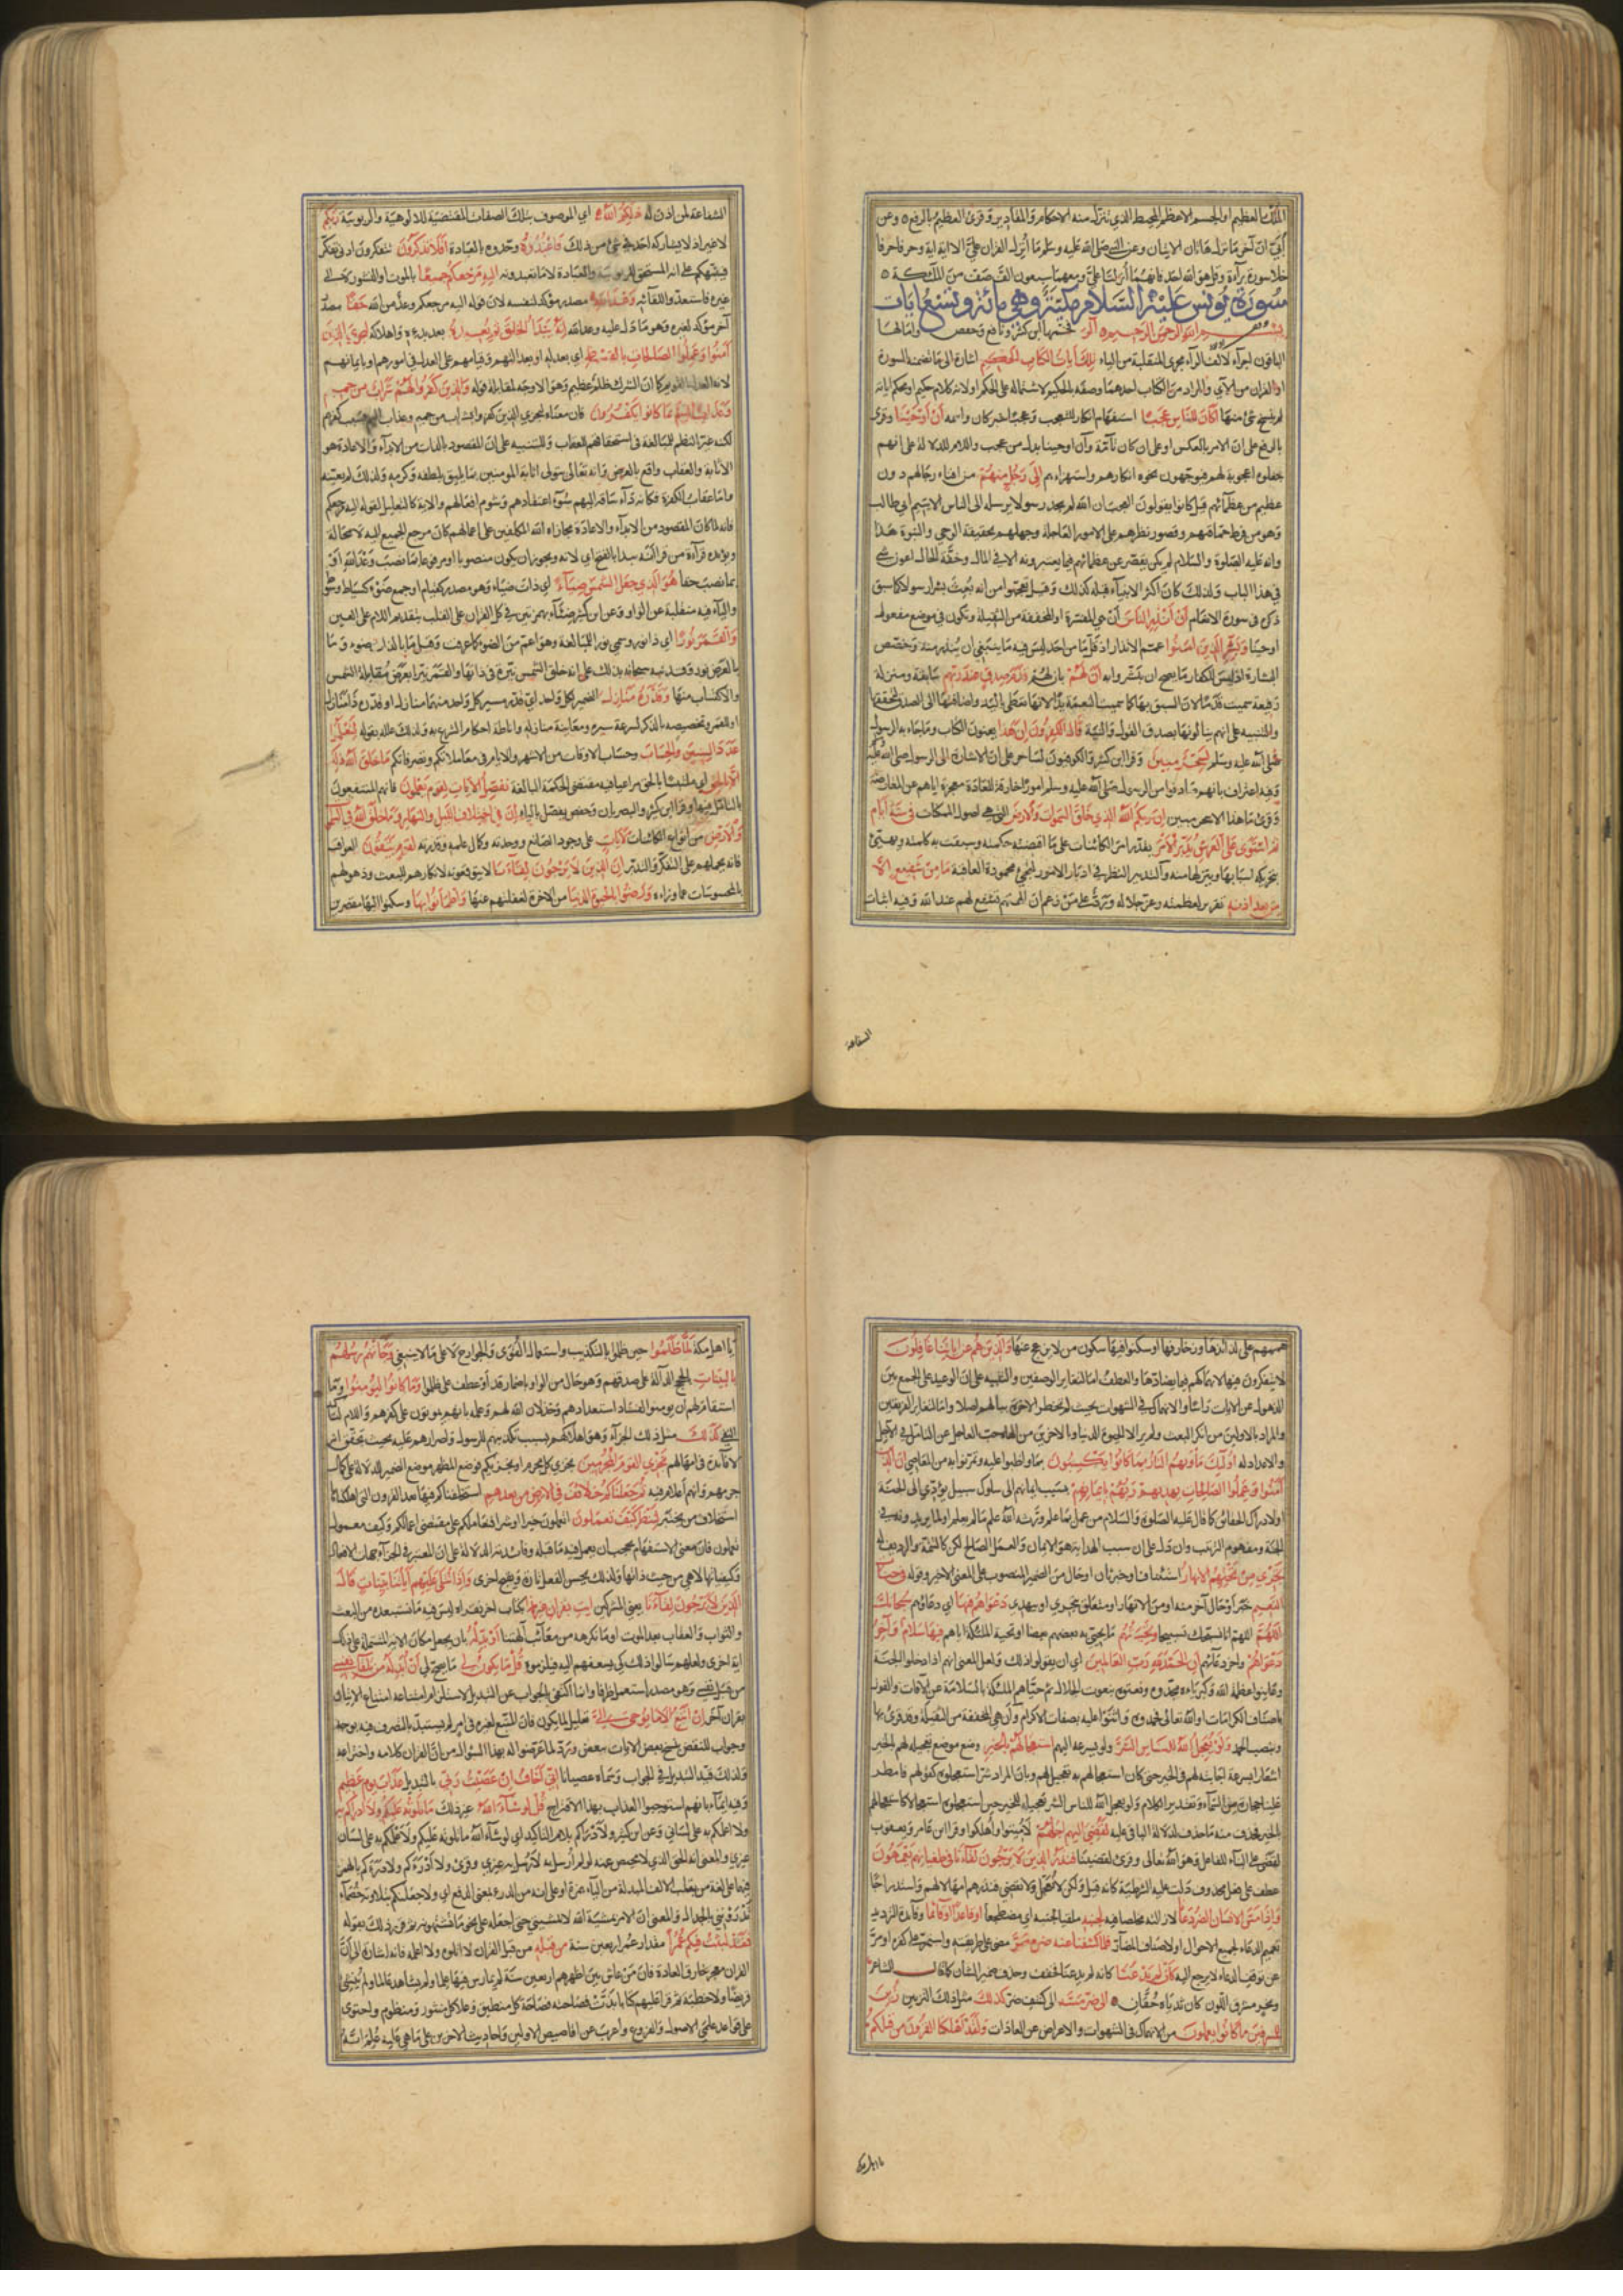 الملك العظيم او الجسم الاعظم المحيط الذي تنزل منه الاحكام والمقادير وقرئ العظيم بالرفع ٥ وعن
أبيّ ان آخر ما نزل هاتان الايتان وعن النبي صلى الله عليه وسلم ما أنزل القران عليّ الا اية اية وحرفا حرفا
خلا سورة برآءة وقل هو الله احد فانهما أنزلتا عليّ ومعهما سبعون الف صف من الملٓئكة ٥
سورة يونس عليه السلام مكية وهي مائة وتسع ايات
بسم الله الرحمن الرحيم ٥ الر فخمها ابن كثير ونافع وحفص وامالها
الباقون اجراء لالف الرآء مجرى المنقلبة من الياء تلك ايات الكتاب الحكيم اشارة الى ما تضمنه السورة
او القران من الآي والمراد من الكتاب احدهما وصفه بالحكيم لاشتماله على الحكم او لانه كلام حكيم او محكم اياته
لم ينسخ شئ منها أكان للناس عجبا استفهام انكار للتعجب وعجبا خبر كان واسمه أن أوحينا وقرئ
بالرفع على ان الامر بالعكس او على ان كان تآمّة وأن اوحينا بدل من عجب واللام للدلالة على انهم
جعلوه اعجوبة لهم يتوجهون نحوه انكارهم واستهزاءهم الى رجل منهم من افناء رجالهم دون
عظيم من عظمآئهم قيل كانوا يقولون العجب ان الله لم يجد رسولا يرسله الى الناس الا يتيم ابي طالب
وهو من فرط حماقتهم وقصور نظرهم على الامور العاجلة وجهلهم بحقيقة الوحي والنبوة هذا
وانه عليه الصلوة والسلام لم يكن يقصر عن عظمائهم فيما يعتبرونه الا في المال وخفة الحال اعون شئ
في هذا الباب ولذلك كان اكثر الانبيآء قبله كذلك وقيل تعجبوا من انه بعث بشرا رسولا كما سبق
ذكره في سورة الانعام أن أنذر الناس أن هي المفسرة او المخففة من الثقيلة فتكون في موضع مفعول
اوحينا وبشر الذين امنوا عمم الانذار اذ قلّما من احد ليس فيه ما ينبغي ان ينذر منه وخصص
البشارة اذ ليس للكفار ما يصح ان يبشروا به أن لهم بان لهم قدم صدق عند ربهم سابقة ومنزلة
رفيعة سميت قدما لان السبق بها كما سميت النعمة يدا لانها تعطى باليد واضافتها الى الصدق لتحققها
والتنبيه على انهم ينالونها بصدق القول والنية قال الكافرون ان هذا يعنون الكتاب وما جاء به الرسول
صلى الله عليه وسلم لسحر مبين وقرا ابن كثير والكوفيون لساحر على ان الاشارة الى الرسول صلى الله عليه
وفيه اعتراف بانهم صادفوا من الرسول صلى الله عليه وسلم امورا خارقة للعادة معجزة اياهم عن المعارضة
وقرئ ما هذا الا سحر مبين ان ربكم الله الذي خلق السموات والارض التي هي اصول الممكنات في ستة ايام
ثم استوى على العرش يدبر الامر يقدر امر الكائنات على ما اقتضته حكمته وسبقت به كلمته ويهيئ
بتحريكه اسبابها وينزلها منه والتدبير النظر في ادبار الامور لتجئ محمودة العاقبة ما من شفيع الا
من بعد اذنه تقرير لعظمته وعز جلاله ورد على من زعم ان الهتهم تشفع لهم عند الله وفيه اثبات
الشفاعة
الشفاعة لمن اذن له ذلكم الله اي الموصوف بتلك الصفات المقتضية للالوهية والربوبية ربكم
لا غير اذ لا يشاركه احد في شئ من ذلك فاعبدوه وحدوه بالعبادة أفلا تذكرون تتفكرون ادنى تفكر
فينبهكم على انه المستحق للربوبية والعبادة لا ما تعبدونه اليه مرجعكم جميعا بالموت او النشور لا الى
غيره فاستعدوا للقآئه وعد الله مصدر مؤكد لنفسه لان قوله اليه مرجعكم وعد من الله حقا مصدر
آخر مؤكد لغيره وهو ما دل عليه وعد الله انه يبدأ الخلق ثم يعيده بعد بدءه واهلاكه ليجزي الذين
آمنوا وعملوا الصالحات بالقسط اي بعدله او بعدالتهم وقيامهم على العدل في امورهم او بايمانهم
لانه العدل القويم كما ان الشرك ظلم عظيم وهو الاوجه لمقابلة قوله والذين كفروا لهم شراب من حميم
وعذاب اليم بما كانوا يكفرون فان معناه ليجزي الذين كفروا بشراب من حميم وعذاب اليم بسبب كفرهم
لكنه غير النظم للمبالغة في استحقاقهم للعقاب والتنبيه على ان المقصود بالذات من الابدآء والاعادة هو
الاثابة والعقاب واقع بالعرض وانه تعالى يتولى اثابة المومنين بما يليق بلطفه وكرمه ولذلك لم يعينه
واما عقاب الكفرة فكانه دآء ساقه اليهم سوء اعتقادهم وشوم افعالهم والاية كالتعليل لقوله اليه مرجعكم
فانه لما كان المقصود من الابدآء والاعادة مجازاة الله المكلفين على اعمالهم كان مرجع الجميع اليه لا محالة
ويؤيده قرآءة من قرا أنه يبدا بالفتح اي لانه ويجوز ان يكون منصوبا او مرفوعا بما نصب وعد الله او
بما نصب حقا هو الذي جعل الشمس ضيآء اي ذات ضياء وهو مصدر كقيام او جمع ضوء كسياط وسوط
واليآء فيه منقلبة عن الواو وعن ابن كثير ضئآء بهمزتين في كل القران على القلب بتقديم اللام على العين
والقمر نورا اي ذا نور وسمي نورا للمبالغة وهو اعم من الضوء كما عرفت وقيل ما بالذات ضوء وما
بالعرض نور وقد نبه سبحانه بذلك على انه خلق الشمس نيرة في ذاتها والقمر نيرا بعرض مقابلة الشمس
والاكتساب منها وقدره منازل الضمير لكل واحد اي قدر مسير كل واحد منهما منازل او قدره ذا منازل
او للقمر وتخصيصه بالذكر لسرعة سيره ومعاينة منازله واناطة احكام الشرع به ولذلك علله بقوله لتعلموا
عدد السنين والحساب وحساب الاوقات من الاشهر والايام في معاملاتكم وتصرفاتكم ما خلق الله ذلك
الا بالحق اي ملتبسا بالحق مراعيا فيه مقتضى الحكمة البالغة نفصل الآيات لقوم يعلمون فانهم المنتفعون
بالتامل فيها وقرا ابن كثير والبصريان وحفص يفصل بالياء ان في اختلاف الليل والنهار وما خلق الله في السموات
والارض من انواع الكائنات لآيات على وجود الصانع ووحدته وكمال علمه وقدرته لقوم يتقون العواقب
فانه يحملهم على التفكر والتدبر ان الذين لا يرجون لقآءنا لا يتوقعونه لانكارهم للبعث وذهولهم
بالمحسوسات عما وراءه ورضوا بالحيوة الدنيا من الاخرة لغفلتهم عنها واطمأنوا بها وسكنوا اليها مقصرين
هممهم على لذائذها وزخارفها او سكنوا فيها سكون من لا يزعج عنها والذين هم عن اياتنا غافلون
لا يتفكرون فيها لانهماكهم فيما يضادها والعطف اما لتغاير الوصفين والتنبيه على ان الوعيد على الجمع بين
الذهول عن الايات راسا والانهماك في الشهوات بحيث لا تخطر الاخرة ببالهم اصلا واما لتغاير الفريقين
والمراد بالاولين من انكر البعث ولم ير الا الحيوة الدنيا وبالاخرين من الهاه حب العاجل عن التامل في الآجل
والاعداد له اولٓئك مأويهم النار بما كانوا يكسبون بما واظبوا عليه وتمرنوا به من المعاصي ان الذين
آمنوا وعملوا الصالحات يهديهم ربهم بايمانهم بسبب ايمانهم الى سلوك سبيل يؤدي الى الجنة
او لادراك الحقائق كما قال عليه الصلوة والسلام من عمل بما علم ورثه الله علم ما لم يعلم او لما يريدونه في
الجنة ومفهوم الترتيب وان دل على ان سبب الهداية هو الايمان والعمل الصالح لكن
تجري من تحتهم الانهار استئناف او خبر ثان او حال من الضمير المنصوب على المعنى الاخير وقوله في جنات
النعيم خبر او حال آخر منه او من الانهار او متعلق بتجري او بيهدي دعواهم فيها اي دعاؤهم سبحانك
اللهم اللهم انا نسبحك تسبيحا وتحيتهم ما يحيي به بعضهم بعضا او تحية الملٓئكة اياهم فيها سلام وآخر
دعواهم وآخر دعآئهم أن الحمد لله رب العالمين اي ان يقولوا ذلك ولعل المعنى انهم اذا دخلوا الجنة
وعاينوا عظمة الله وكبرياءه مجدوه ونعتوه بنعوت الجلال ثم حيّاهم الملٓئكة بالسلامة عن الآفات والفوز
باصناف الكرامات او الله تعالى فحمدوه واثنوا عليه بصفات الاكرام وأن هي المخففة من الثقيلة وقد قرئ بها
وبنصب الحمد ولو يعجل الله للناس الشر ولو يسرعه اليهم استعجالهم بالخير وضع موضع تعجيله لهم الخير
اشعارا بسرعة اجابته لهم في الخير حتى كان استعجالهم به تعجيل لهم وبان المراد شر استعجلوه كقولهم فامطر
علينا حجارة من السمآء وتقدير الكلام ولو يعجل الله للناس الشر تعجيله للخير حين استعجلوه استعجالا كاستعجالهم
بالخير فحذف منه ما حذف لدلالة الباقي عليه لقضي اليهم اجلهم لأميتوا وأهلكوا وقرا ابن عامر ويعقوب
لقضى على البنآء للفاعل وهو الله تعالى وقرئ لقضينا فنذر الذين لا يرجون لقآءنا في طغيانهم يعمهون
عطف على فعل محذوف دلت عليه الشرطية كانه قيل ولكن لا نعجل ولا نقضي فنذرهم امهالا لهم واستدراجا
واذا مس الانسان الضر دعانا لازالته مخلصا فيه لجنبه ملقيا لجنبه اي مضطجعا او قاعدا او قائما وفائدة الترديد
تعميم الدعاء لجميع الاحوال او لاصناف المضآر فلما كشفنا عنه ضره مر مضى على طريقته واستمر على كفره او مر
عن موقف الدعاء لا يرجع اليه كأن لم يدعنا كانه لم يدعنا فخفف وحذف ضمير الشأن كما قال الشاعر
ونحر مشرق اللون كان ثدياه حُقّان ٥ الى ضر مسه الى كشف ضر كذلك مثل ذلك التزيين زين
للمسرفين ما كانوا يعملون من الانهماك في الشهوات والاعراض عن العبادات ولقد اهلكنا القرون من قبلكم
يا اهل مكة
يا اهل مكة لما ظلموا حين ظلموا بالتكذيب واستعمال القوى والجوارح لا على ما لا ينبغي وجآءتهم رسلهم
بالبينات بالحجج الدآلة على صدقهم وهو حال من الواو باضمار قد أو عطف على ظلموا وما كانوا ليؤمنوا وما
استقام لهم ان يومنوا لفساد استعدادهم وخذلان الله لهم وعلمه بانهم يموتون على كفرهم واللام لتاكيد
النفي كذلك مثل ذلك الجزآء وهو اهلاكهم بسبب تكذيبهم للرسول واصرارهم عليه بحيث تحقق انه
لا فآئدة في امهالهم نجزي القوم المجرمين نجزي كل مجرم او نجزيكم فوضع المظهر موضع الضمير للدلالة على كمال
جرمهم وانهم أعلام فيه ثم جعلناكم خلائف في الارض من بعدهم استخلفناكم فيها بعد القرون التي اهلكناها
استخلاف من يختبر لننظر كيف تعملون اتعملون خيرا او شرا فنعاملكم على مقتضى اعمالكم وكيف معمول
تعملون فان معنى الاستفهام يحجب ان يعمل فيه ما قبله وفائدته الدلالة على ان المعتبر في الجزآء جهات الافعال
وكيفياتها لا هي من حيث ذاتها ولذلك يحسن الفعل تارة ويقبح اخرى واذا تتلى عليهم آياتنا بينات قال
الذين لا يرجون لقآءنا يعني المشركين ايت بقران غير هذا بكتاب اخر نقرأه ليس فيه ما نستبعده من البعث
والثواب والعقاب بعد الموت او ما نكرهه من معآئب آلهتنا أو بدله بان يجعل مكان الاية المشتملة على ذلك
اية اخرى ولعلهم سالوا ذلك كي يسعفهم اليه فيلزموه قل ما يكون لي ما يصح لي أن أبدله من تلقآء نفسي
من قبل نفسي وهو مصدر استعمل ظرفا وانما اكتفى بالجواب عن التبديل لاستلزام امتناعه امتناع الاتيان
بقران آخر إن أتبع الا ما يوحى الي تعليل لما يكون فان المتبع لغيره في امر لم يستبد بالتصرف فيه بوجه
وجواب للنقض بنسخ بعض الايات ببعض ورد لما عرضوا له بهذا السؤال من ان القران كلامه واختراعه
ولذلك قيد التبديل في الجواب وسماه عصيانا اني أخاف ان عصيت ربي بالتبديل عذاب يوم عظيم
وفيه ايمآء بانهم استوجبوا العذاب بهذا الاقتراح قل لو شآء الله غير ذلك ما تلوته عليكم ولا أدراكم به
ولا اعلمكم به على لساني وعن ابن كثير ولأدراكم بلام التاكيد اي لو شآء الله ما تلوته عليكم ولأعلمكم به على لسان
غيري والمعنى انه الحق الذي لا محيص عنه لو لم أرسل به لأرسل به غيري وقرئ ولا أدرأكم ولا ادرأتكم بالهمز
فيهما على لغة من يقلب الالف المبدلة من اليآء همزة او على انه من الدرء بمعنى الدفع اي ولا جعلتكم بتلاوته خصمآء
تدرؤنني بالجدال والمعنى ان الامر بمشية الله لا بمشيتي حتى اجعله على نحو ما تشتهونه ثم قرر ذلك بقوله
فقد لبثت فيكم عمرا مقدار عمر اربعين سنة من قبله من قبل القران لا اتلوه ولا اعلمه فانه اشارة الى أن
القران معجز خارق للعادة فان من عاش بين اظهرهم اربعين سنة لم يمارس فيها علما ولم يشاهد عالما ولم ينشئ
قريضا ولا خطبة ثم قرا عليهم كتابا بذّت فصاحته فصاحة كل منطيق وعلا كل منثور ومنظوم واحتوى
على قواعد علمي الاصول والفروع واعرب عن اقاصيص الاولين واحاديث الاخرين على ما هي عليه عُلم انه